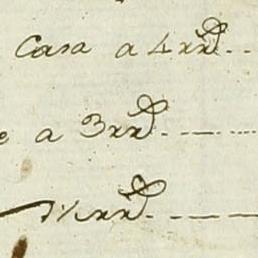 Casa a 4 rrs...
e a 3 rrs
1½ rrs